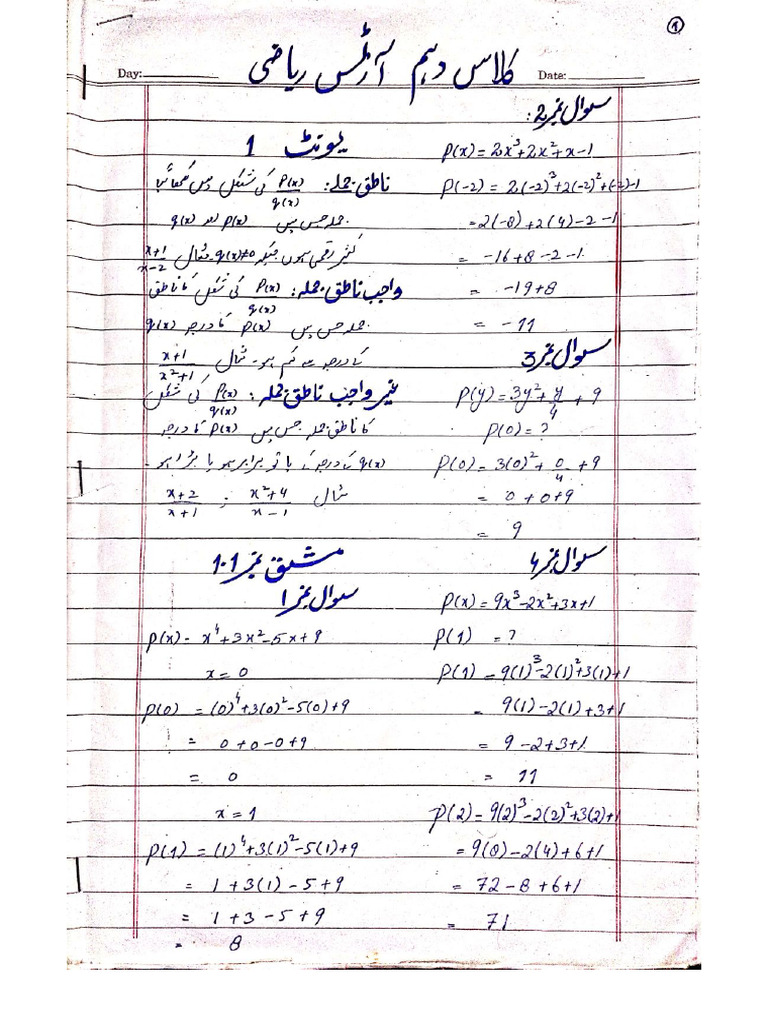 1
کلاس دہم آرٹس ریاضی
Day:
Date:
یونٹ 1
ناطق جملہ: P(x)/q(x) کی شکل میں لکھا گیا
جملہ جس میں P(x) اور q(x)
کثیر رقمی ہوں جبکہ q(x)≠0۔ مثال x+1/x-2
واجب ناطق جملہ: P(x)/q(x) کی شکل کا ناطق
جملہ جس میں P(x) کا درجہ q(x)
کے درجہ سے کم ہو۔ مثال x+1/x²+1
غیر واجب ناطق جملہ: P(x)/q(x) کی شکل
کا ناطق جملہ جس میں P(x) کا درجہ
q(x) کے درجہ کے یا تو برابر ہو یا بڑا ہو۔
مثال x²+4/x-1 ; x+2/x+1
مشق نمبر 1.1
سوال نمبر 1
P(x) = x⁴+3x²-5x+9
x=0
P(0) = (0)⁴+3(0)²-5(0)+9
= 0+0-0+9
= 0
x=1
P(1) = (1)⁴+3(1)²-5(1)+9
= 1+3(1)-5+9
= 1+3-5+9
= 8
سوال نمبر 2:
P(x) = 2x³+2x²+x-1
P(-2) = 2(-2)³+2(-2)²+(-2)-1
=2(-8)+2(4)-2-1
= -16+8-2-1
= -19+8
= -11
سوال نمبر 3
P(y) = 3y²+y/4+9
P(0) = ?
P(0) = 3(0)²+0/4+9
= 0+0+9
= 9
سوال نمبر 4
P(x) = 9x³-2x²+3x+1
P(1) = ?
P(1) = 9(1)³-2(1)²+3(1)+1
= 9(1)-2(1)+3+1
= 9-2+3+1
= 11
P(2) = 9(2)³-2(2)²+3(2)+1
=9(8)-2(4)+6+1
= 72-8+6+1
= 71